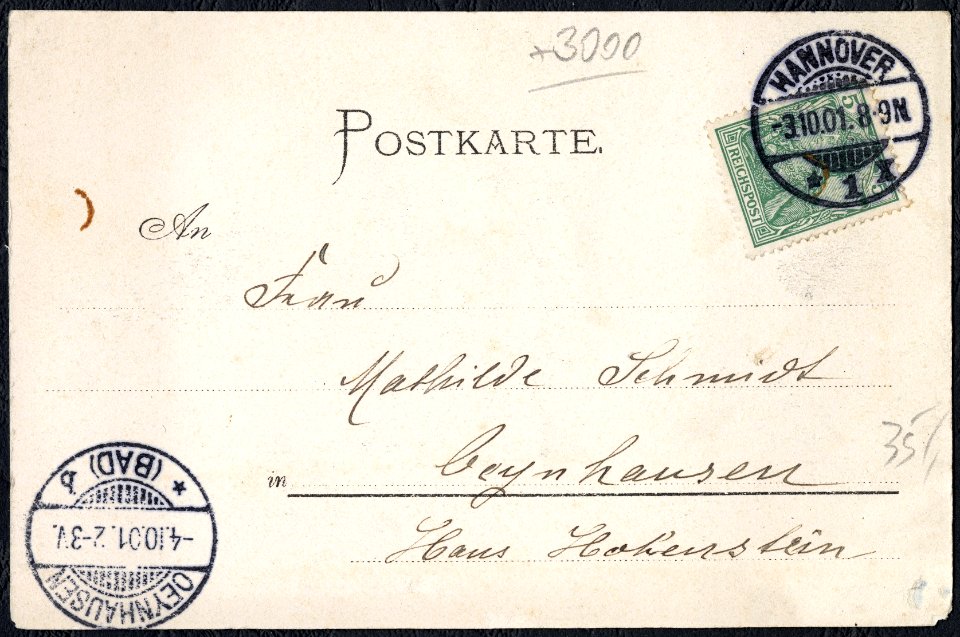 +3000
HANNOVER
-3.10.01. 8-9N
* 1 I
5
REICHSPOST
POSTKARTE.
An
Frau
Mathilde Schmidt
in Oeynhausen
Haus Hohenstein
35,-
OEYNHAUSEN
-4.10.01. 2-3V.
* (BAD) b